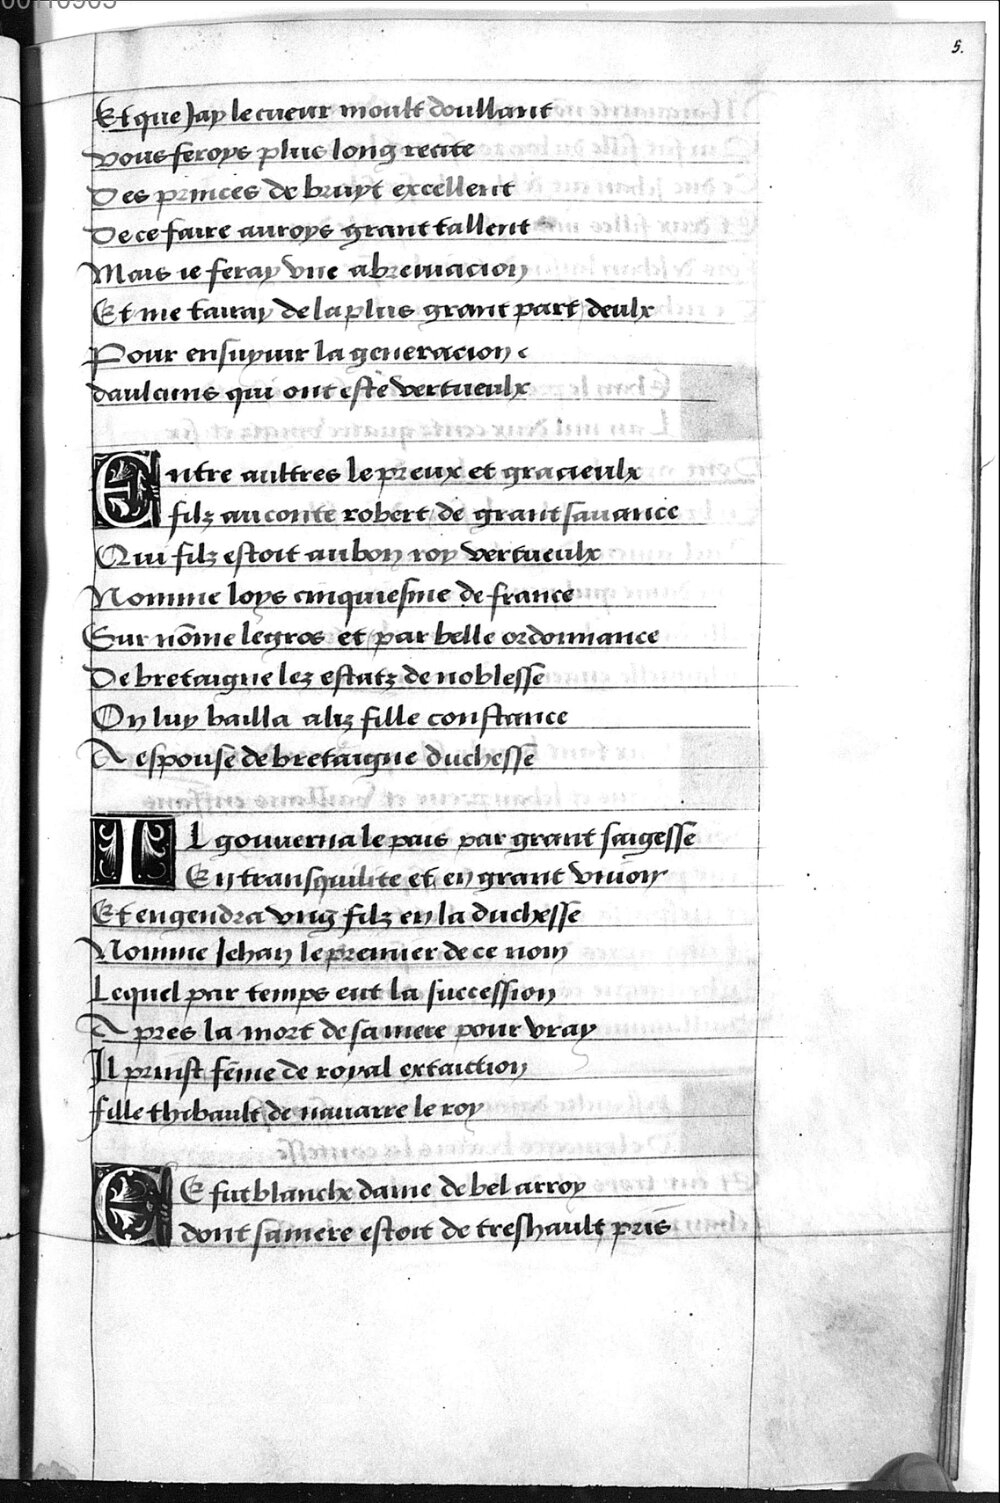 5.
Et que Jay le cueur moult doullant
vous feroys plus long recite
Des princes de bruyt excellent
De ce faire auroys grant tallent
Mais ie feray vne abreuiacion
Et me tairay de la plus grant part deulx
Pour ensuyuir la generacion
daulcuns qui ont este vertueulx
Entre aultres le preux et gracieulx
filz au conte robert de grant sauance
Qui filz estoit au bon roy vertueulx
Nomme loys cinquiesme de france
Sur nōme le gros et par belle ordonnance
De bretaigne lez estatz de noblesse
On luy bailla aliz fille constance
A espouse de bretaigne duchesse
IL gouuerna le pais par grant saigesse
En transquilite et en grant vnion
Et engendra vng filz en la duchesse
Nomme Jehan le premier de ce nom
Lequel par temps eut la succession
Apres la mort de sa mere pour vray
Il prinst fēme de royal extaiction
fille thibault de nauarre le roy
CE fut blanche dame de bel arroy
dont sa mere estoit de treshault pris